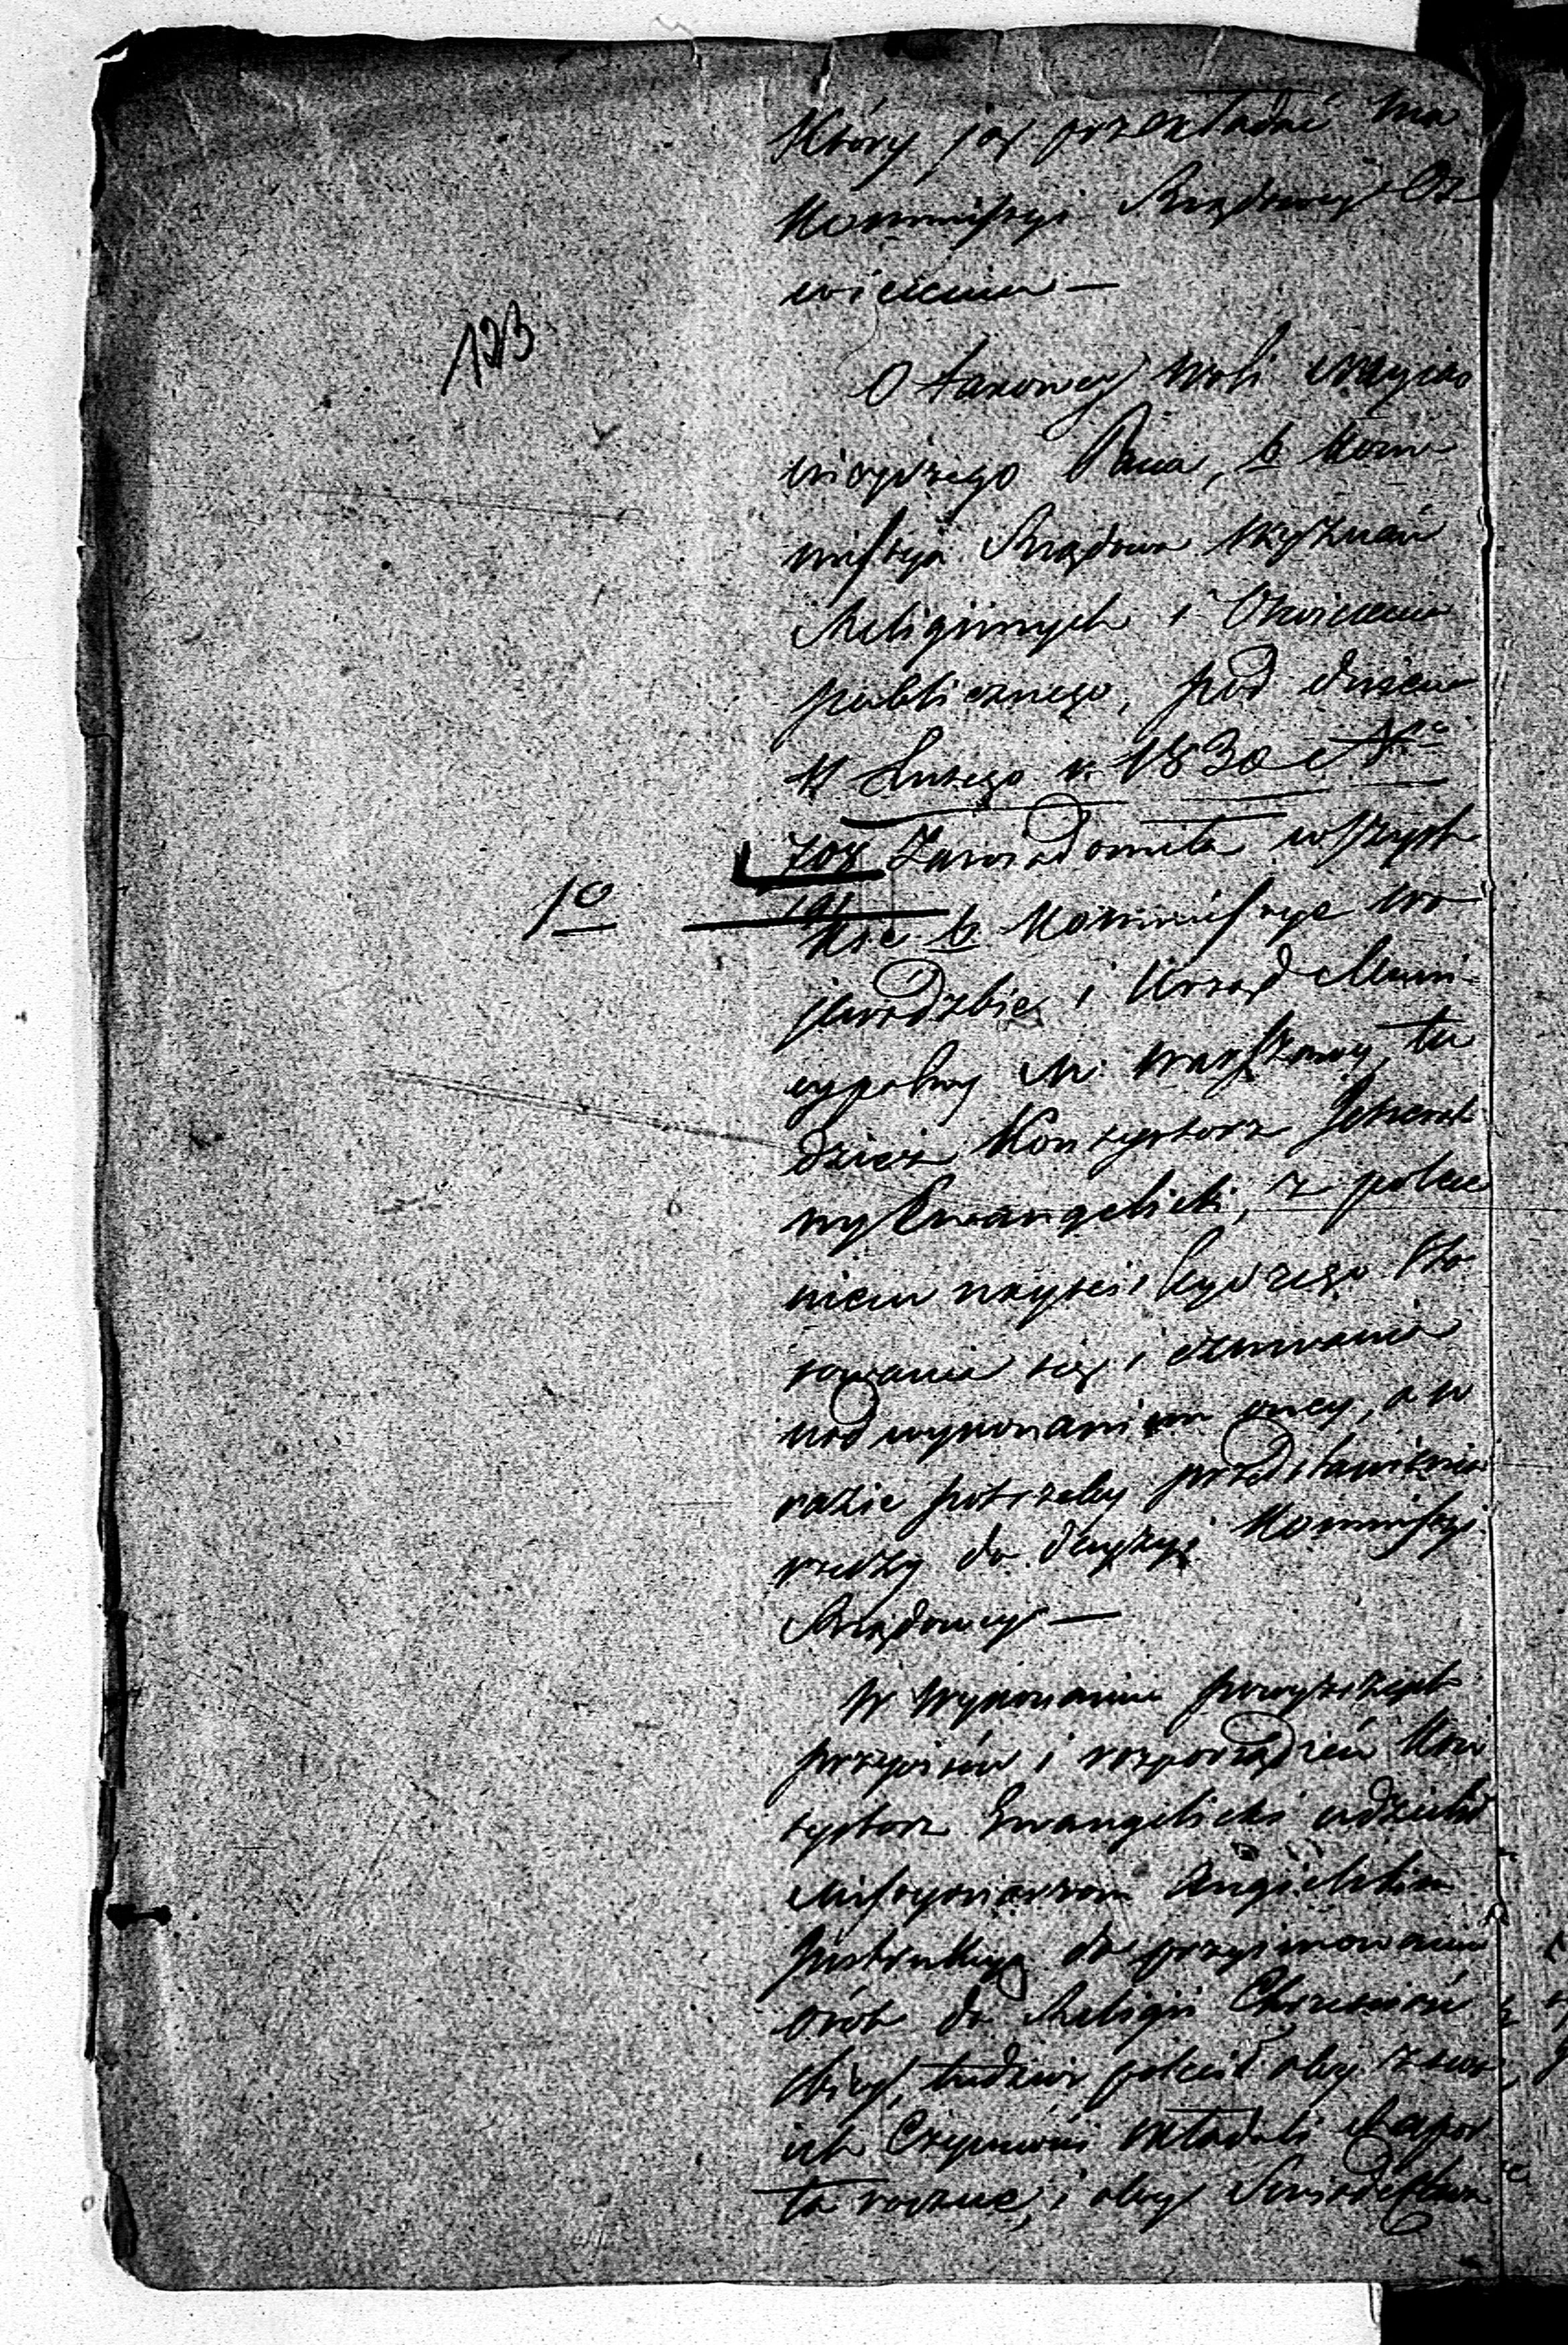 który ją przekładać ma
Kommissyi Rządowey Oś
wiecenia —
123
O takowey woli Nayias
nieyszego Pana, b. Kom
missyia Rządowa Wyznań
Religiinych i Oświecenia
publicznego, pod dniem
Lutego r. 1830 No
708 Zawiadomiła wszyst
1o
kie b. Kommissye Wo
jewódzkie i Urząd Muni
cypalny M. Warszawy, tu
dzież Konsystorz Jeneral
ny Ewangelicki, z polece
niem nayściśleyszego sto
sowania się i czuwania
nad wykonaniem oney, a w
razie potrzeby przedstawienia
rzeczy do decyzyi Kommissyi
Rządowey —
W wykonaniu powyższych
przepisów i rozporządzeń Kon
systorz Ewangelicki udzielił
Missyonarzom Angielskim
Instrukcyą do przyimowania
osób do Religii Chrześciań
skiey, tudzież polecił aby z swo
ich czynności składali Rapor
ta roczne, i aby Świadectwa